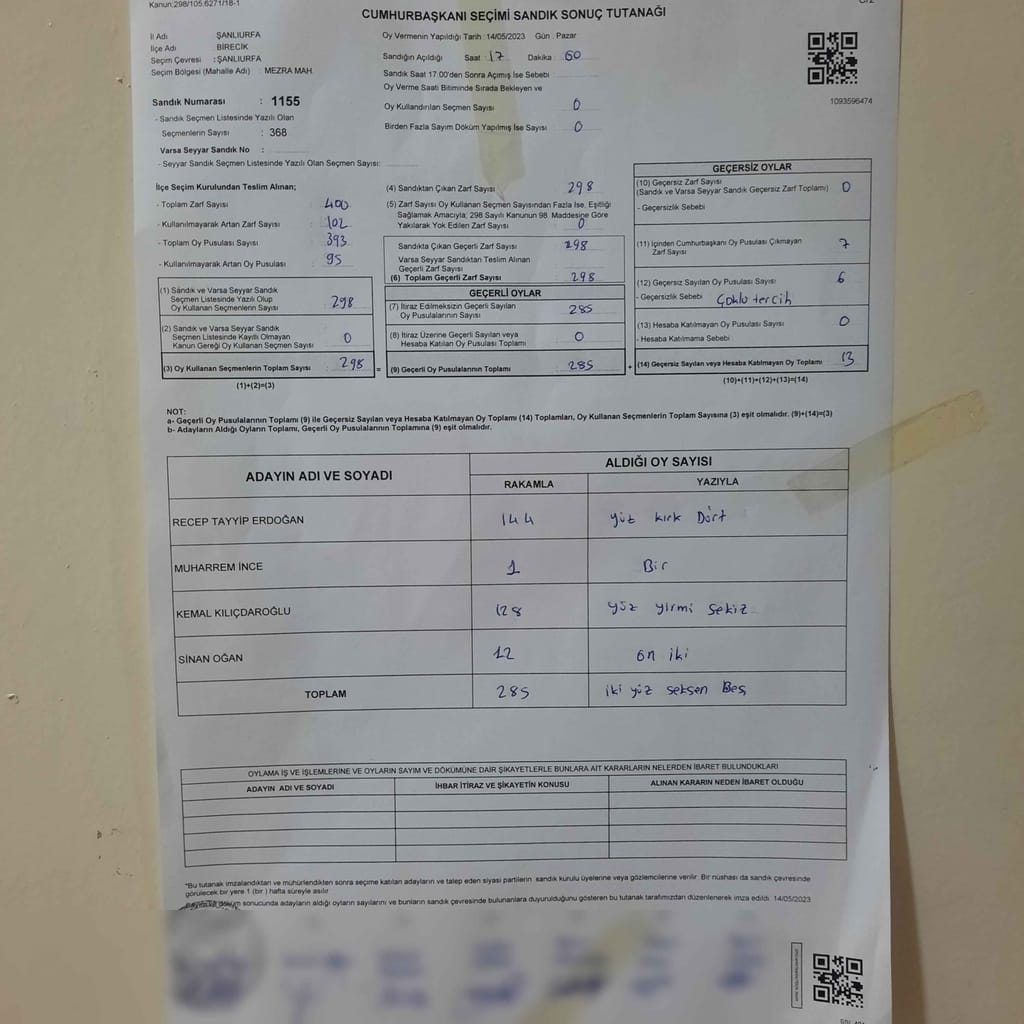 Kanun:298/105.6271/18-1
CUMHURBAŞKANI SEÇİMİ SANDIK SONUÇ TUTANAĞI
İl Adı ŞANLIURFA
İlçe Adı BİRECİK
Seçim Çevresi : ŞANLIURFA
Seçim Bölgesi (Mahalle Adı) : MEZRA MAH.
Sandık Numarası : 1155
- Sandık Seçmen Listesinde Yazılı Olan
Seçmenlerin Sayısı : 368
Varsa Seyyar Sandık No :
- Seyyar Sandık Seçmen Listesinde Yazılı Olan Seçmen Sayısı:
Oy Vermenin Yapıldığı Tarih : 14/05/2023 Gün : Pazar
Sandığın Açıldığı Saat 17 Dakika 60
Sandık Saat 17:00'den Sonra Açımış İse Sebebi
Oy Verme Saati Bitiminde Sırada Bekleyen ve
Oy Kullandırılan Seçmen Sayısı 0
Birden Fazla Sayım Döküm Yapılmış İse Sayısı 0
1093596474
İlçe Seçim Kurulundan Teslim Alınan;
- Toplam Zarf Sayısı 400
- Kullanılmayarak Artan Zarf Sayısı 102
- Toplam Oy Pusulası Sayısı 393
- Kullanılmayarak Artan Oy Pusulası 95
(1) Sandık ve Varsa Seyyar Sandık
Seçmen Listesinde Yazılı Olup
Oy Kullanan Seçmenlerin Sayısı 298
(2) Sandık ve Varsa Seyyar Sandık
Seçmen Listesinde Kayıtlı Olmayan
Kanun Gereği Oy Kullanan Seçmen Sayısı 0
(3) Oy Kullanan Seçmenlerin Toplam Sayısı 298 =
(1)+(2)=(3)
(4) Sandıktan Çıkan Zarf Sayısı 298
(5) Zarf Sayısı Oy Kullanan Seçmen Sayısından Fazla İse, Eşitliği
Sağlamak Amacıyla; 298 Sayılı Kanunun 98. Maddesine Göre
Yakılarak Yok Edilen Zarf Sayısı 0
Sandıkta Çıkan Geçerli Zarf Sayısı 298
Varsa Seyyar Sandıktan Teslim Alınan
Geçerli Zarf Sayısı
(6) Toplam Geçerli Zarf Sayısı 298
GEÇERLİ OYLAR
(7) İtiraz Edilmeksizin Geçerli Sayılan
Oy Pusulalarının Sayısı 285
(8) İtiraz Üzerine Geçerli Sayılan veya
Hesaba Katılan Oy Pusulası Toplamı 0
(9) Geçerli Oy Pusulalarının Toplamı 285 +
GEÇERSİZ OYLAR
(10) Geçersiz Zarf Sayısı
(Sandık ve Varsa Seyyar Sandık Geçersiz Zarf Toplamı) 0
- Geçersizlik Sebebi
(11) İçinden Cumhurbaşkanı Oy Pusulası Çıkmayan
Zarf Sayısı 7
(12) Geçersiz Sayılan Oy Pusulası Sayısı 6
- Geçersizlik Sebebi Çoklu tercih
(13) Hesaba Katılmayan Oy Pusulası Sayısı 0
- Hesaba Katılmama Sebebi
(14) Geçersiz Sayılan veya Hesaba Katılmayan Oy Toplamı 13
(10)+(11)+(12)+(13)=(14)
NOT:
a- Geçerli Oy Pusulalarının Toplamı (9) ile Geçersiz Sayılan veya Hesaba Katılmayan Oy Toplamı (14) Toplamları, Oy Kullanan Seçmenlerin Toplam Sayısına (3) eşit olmalıdır. (9)+(14)=(3)
b- Adayların Aldığı Oyların Toplamı, Geçerli Oy Pusulalarının Toplamına (9) eşit olmalıdır.
ADAYIN ADI VE SOYADI ALDIĞI OY SAYISI
RAKAMLA YAZIYLA
RECEP TAYYİP ERDOĞAN 144 yüz kırk Dört
MUHARREM İNCE 1 Bir
KEMAL KILIÇDAROĞLU 128 yüz yirmi sekiz
SİNAN OĞAN 12 on iki
TOPLAM 285 iki yüz seksen Beş
OYLAMA İŞ VE İŞLEMLERİNE VE OYLARIN SAYIM VE DÖKÜMÜNE DAİR ŞİKAYETLERLE BUNLARA AİT KARARLARIN NELERDEN İBARET BULUNDUKLARI
ADAYIN ADI VE SOYADI İHBAR İTİRAZ VE ŞİKAYETİN KONUSU ALINAN KARARIN NEDEN İBARET OLDUĞU
*Bu tutanak imzalandıktan ve mühürlendikten sonra seçime katılan adayların ve talep eden siyasi partilerin sandık kurulu üyelerine veya gözlemcilerine verilir. Bir nüshası da sandık çevresinde
görülecek bir yere 1 (bir) hafta süreyle asılır
döküm sonucunda adayların aldığı oyların sayılarını ve bunların sandık çevresinde bulunanlara duyurulduğunu gösteren bu tutanak tarafımızdan düzenlenerek imza edildi. 14/05/2023